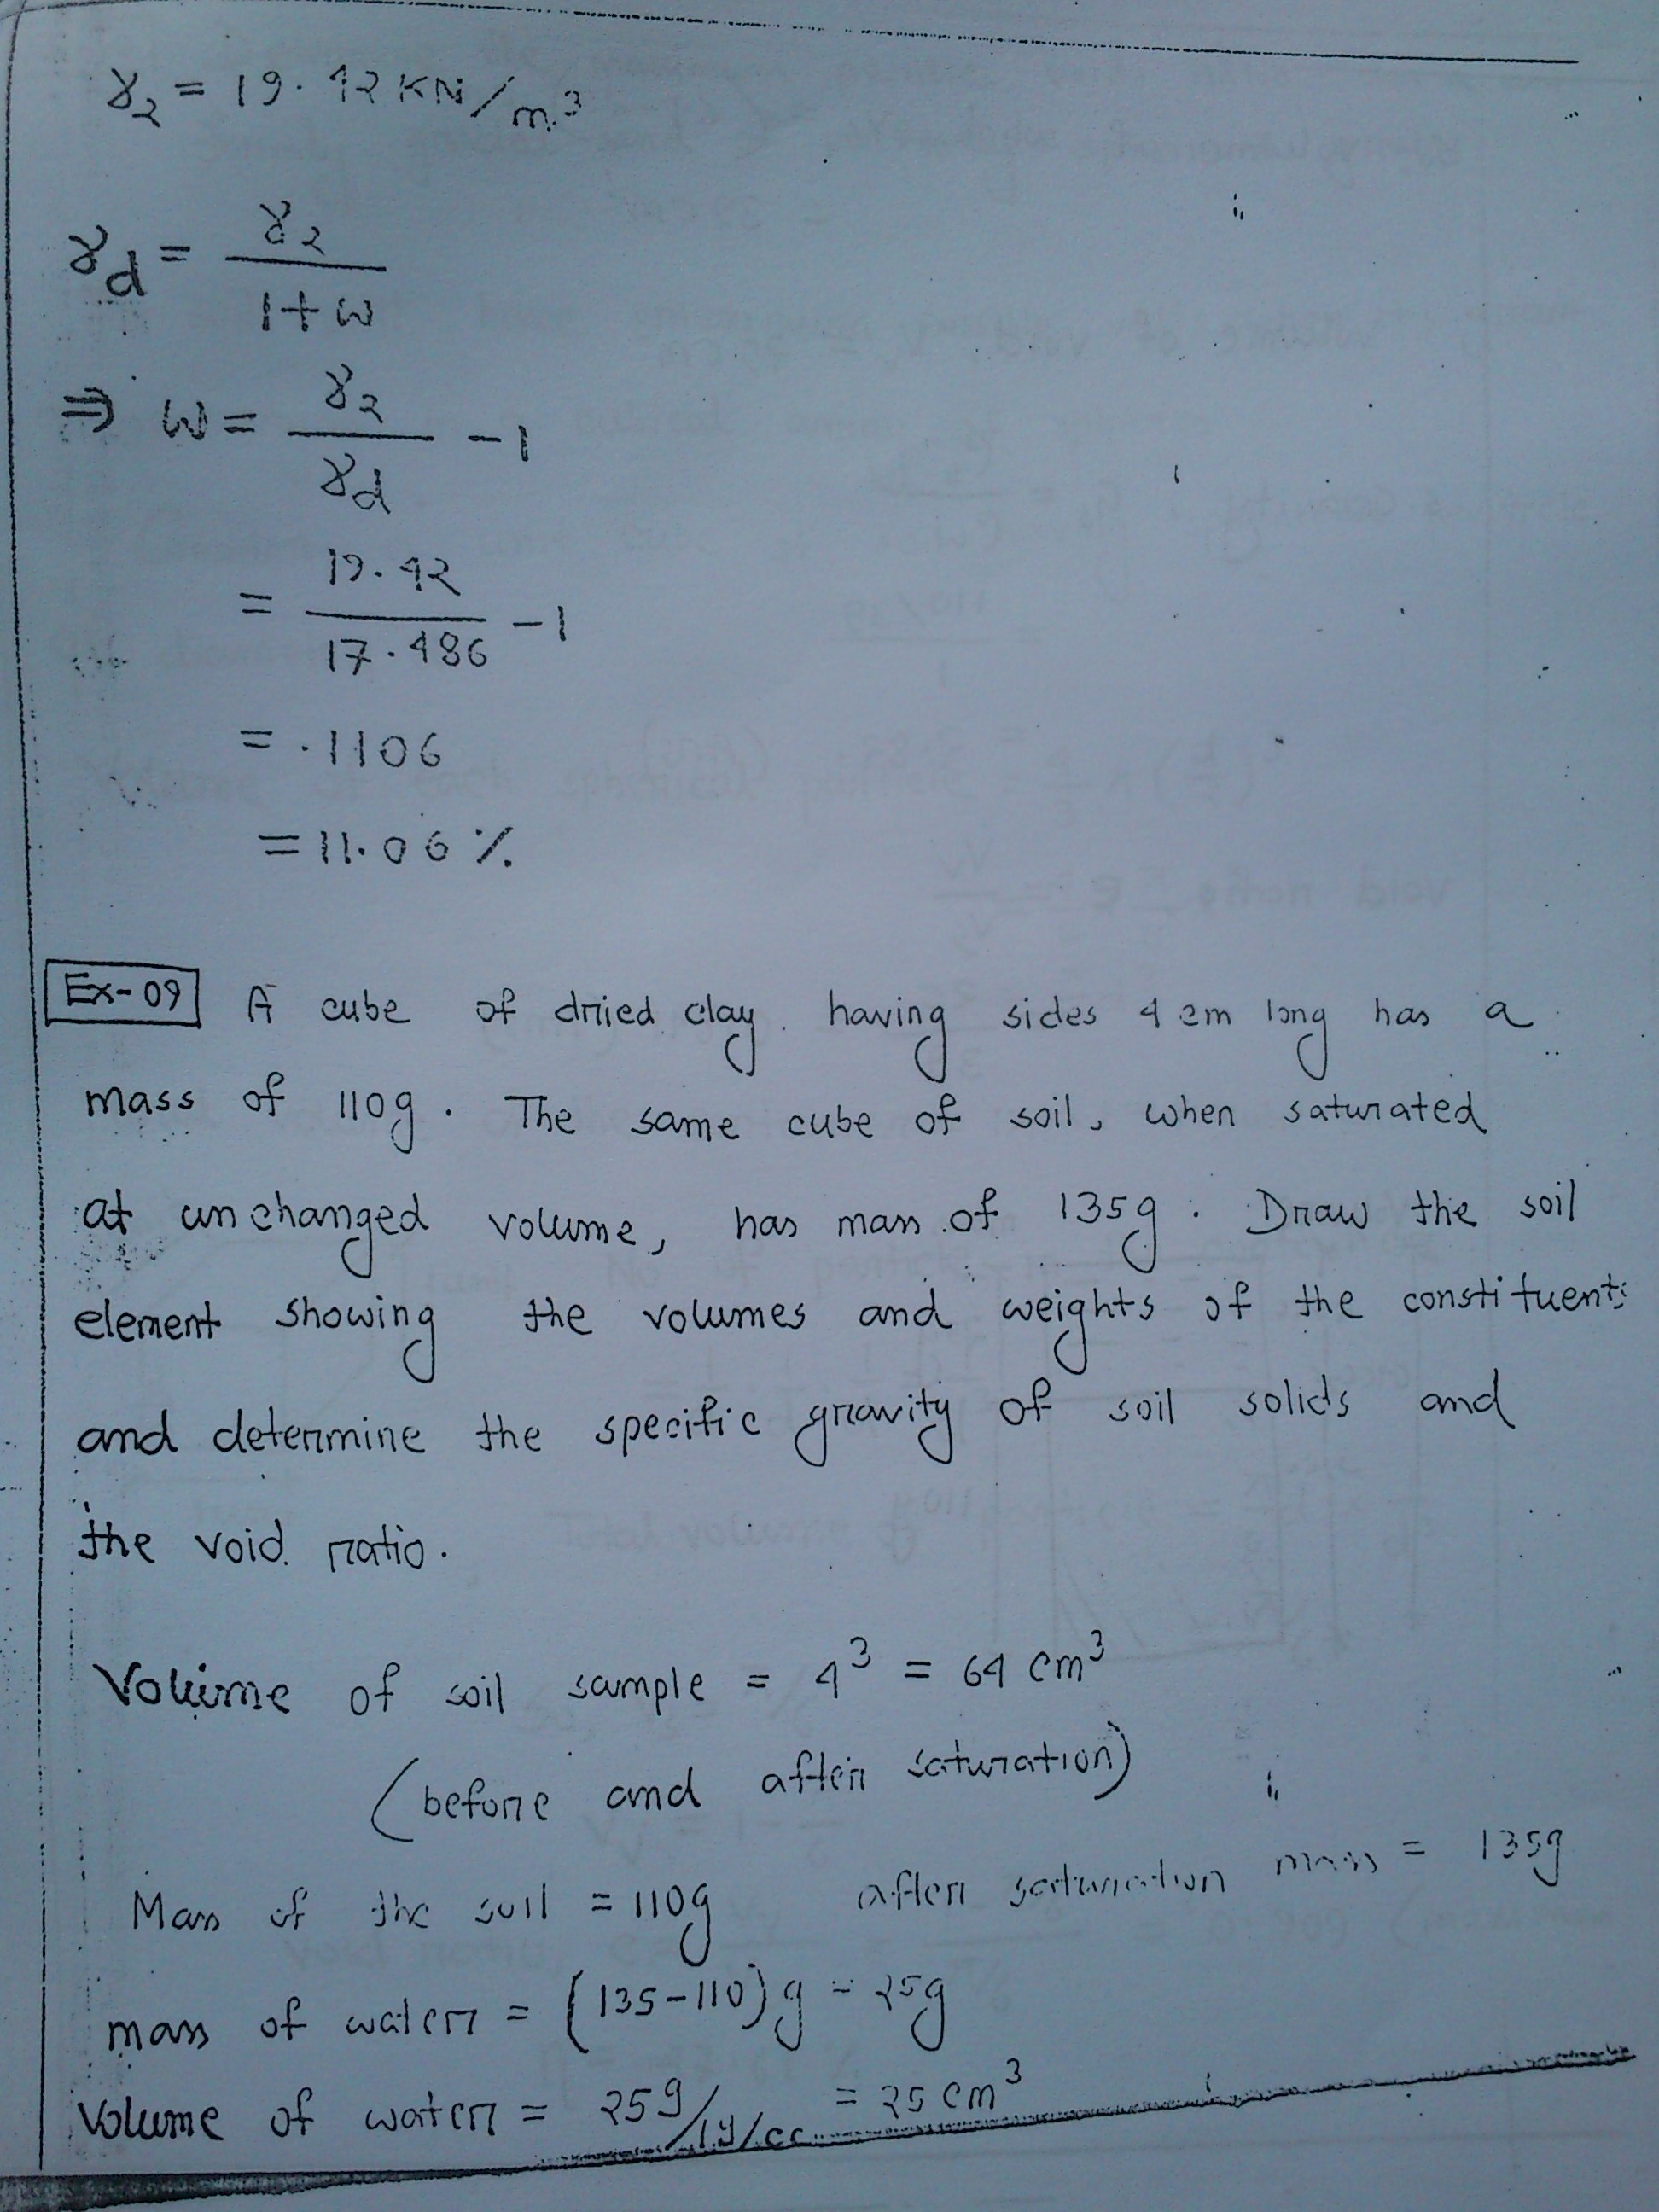 γ₂ = 19.42 KN/m³
γd = γ₂ / 1+ω
⇒ ω = γ₂ / γd - 1
= 19.42 / 17.486 - 1
= .1106
= 11.06 %
Ex-09 A cube of dried clay having sides 4 cm long has a
mass of 110g. The same cube of soil, when saturated
at unchanged volume, has mass of 135g. Draw the soil
element showing the volumes and weights of the constituents
and determine the specific gravity of soil solids and
the void ratio.
Volume of soil sample = 4³ = 64 cm³
(before and after saturation)
Mass of the soil = 110g after saturation mass = 135g
mass of water = (135-110)g = 25g
Volume of water = 25g/1g/cc = 25 cm³